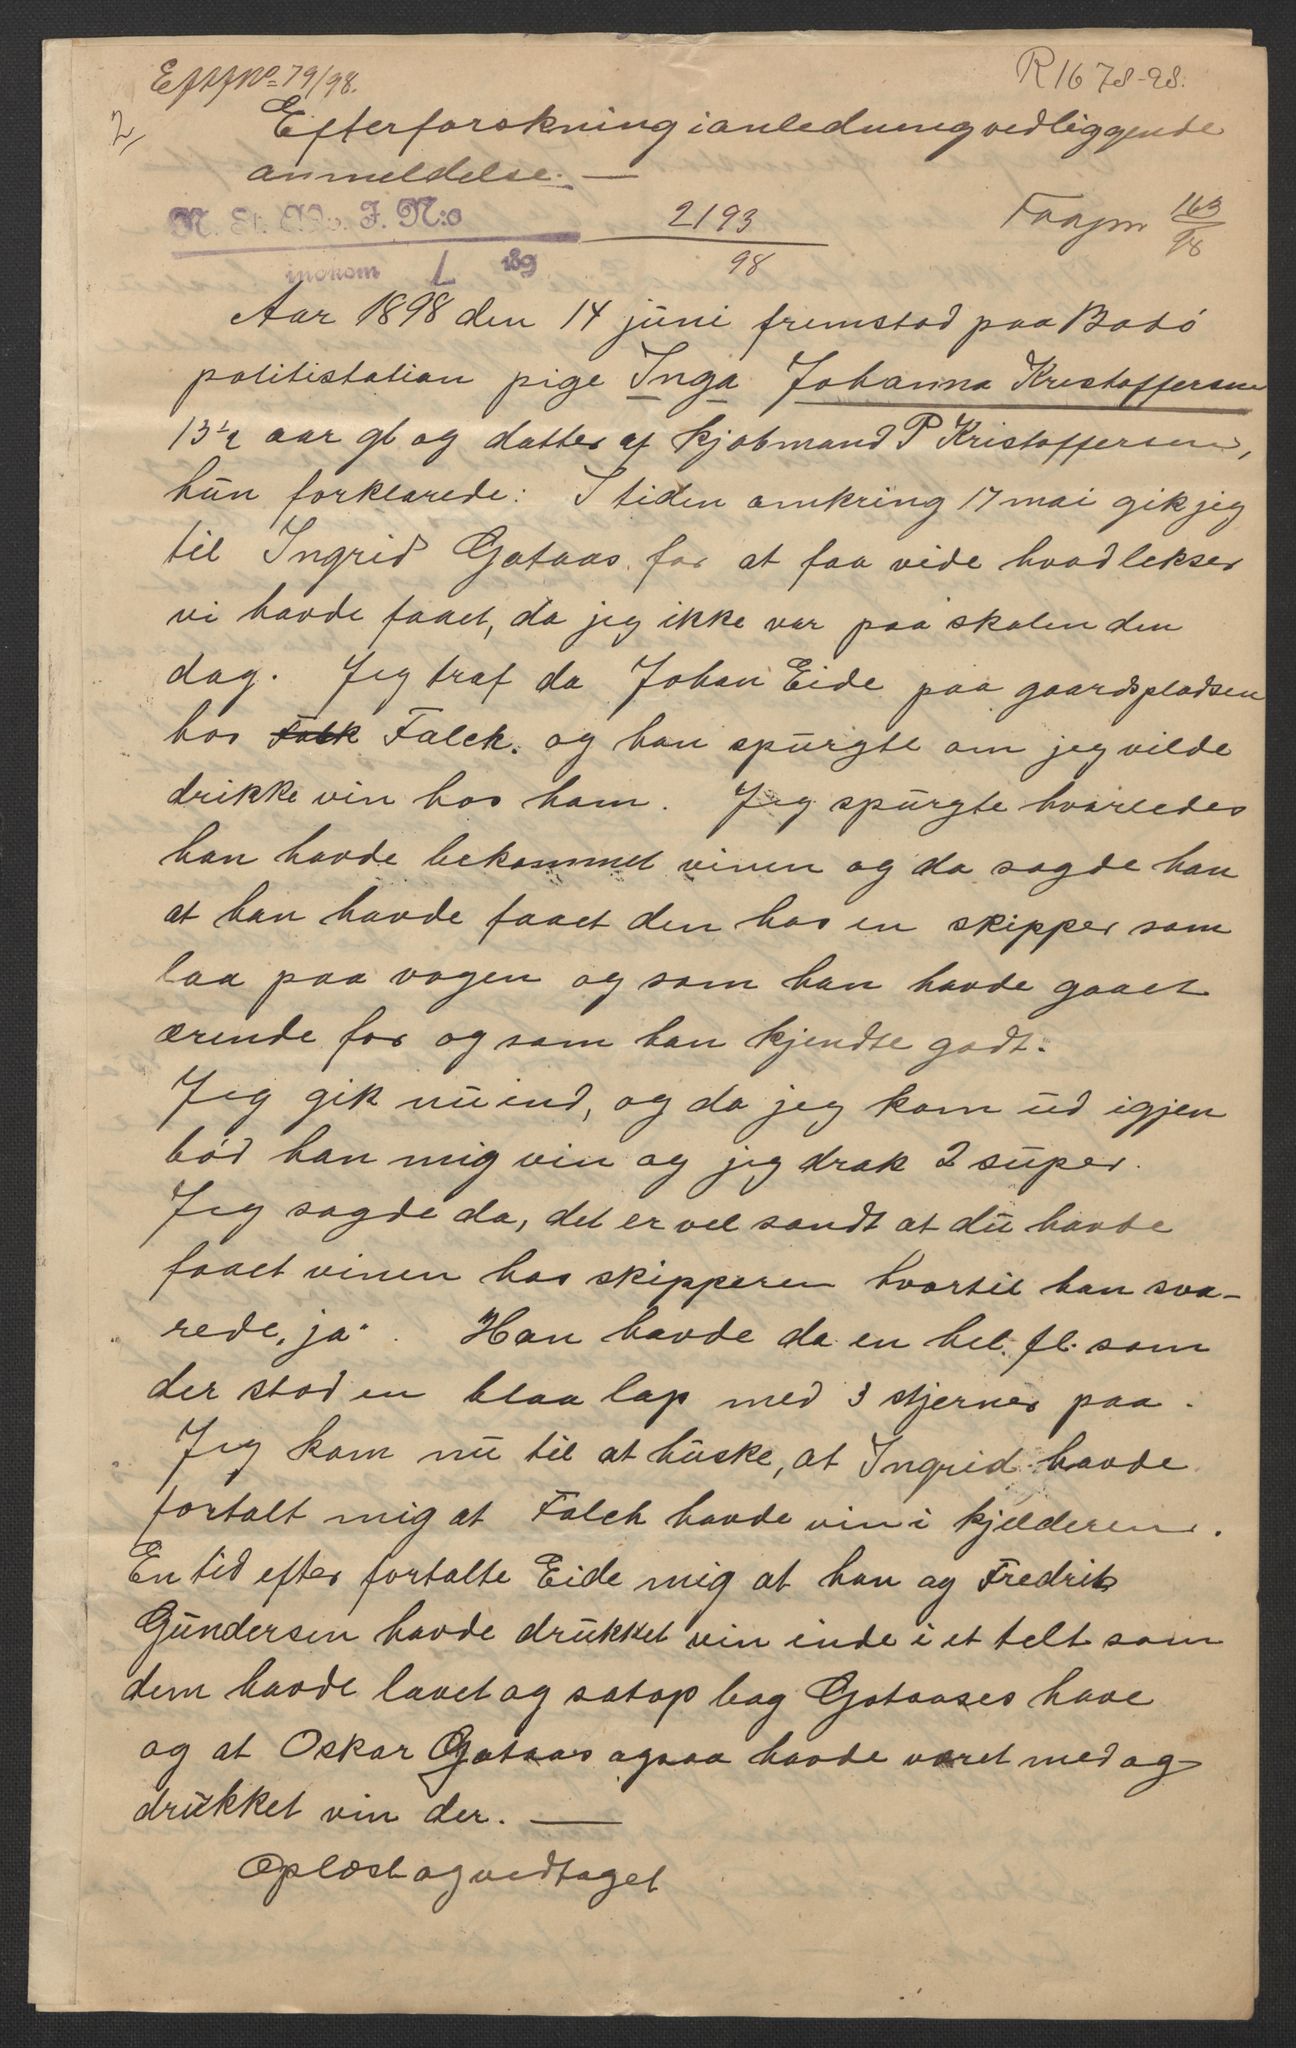 Eftf No 79/98.
R1678-98.
2,
Efterforskning i anledning vedliggende
anmeldelse. —
N. St. Adv. J. N:o 2193
98
163
98
indkom L 189
Aar 1898 den 14 juni fremstod paa Bodó
politistation pige Inga Johanna Kristoffersen
13½ aar gl og datter af kjøbmand P Kristoffersen,
hun forklarede: I tiden omkring 17 mai gik jeg
til Ingrid Gotaas for at faa vide hvad lekser
vi havde faaet, da jeg ikke var paa skolen den
dag. Jeg traf da Johan Eide paa gaardspladsen
hos Falk Falch. og han spurgte om jeg vilde
drikke vin hos ham. Jeg spurgte hvorledes
han havde bekommet vinen og da sagde han
at han havde faaet den hos en skipper som
laa paa vagen og som han havde gaaet
ærende for og som han kjendte godt.
Jeg gik nu ind, og da jeg kom ud igjen
bód han mig vin og jeg drak 2 super.
Jeg sagde da, det er vel sandt at du havde
faaet vinen hos skipperen hvortil han sva-
rede, ja". Han havde da en hel. fl. som
der stod en blaa lap med 3 stjerner paa.
Jeg kom nu til at huske, at Ingrid havde
fortalt mig at Falch havde vin i kjelderen.
En tid efter fortalte Eide mig at han og Fredrik
Gundersen havde drukket vin inde i et telt som
dem havde lavet og sat op bag Gotaases have
og at Oskar Gotaas ogsaa havde været med og
drukket vin der. —
Oplæst og vedtaget